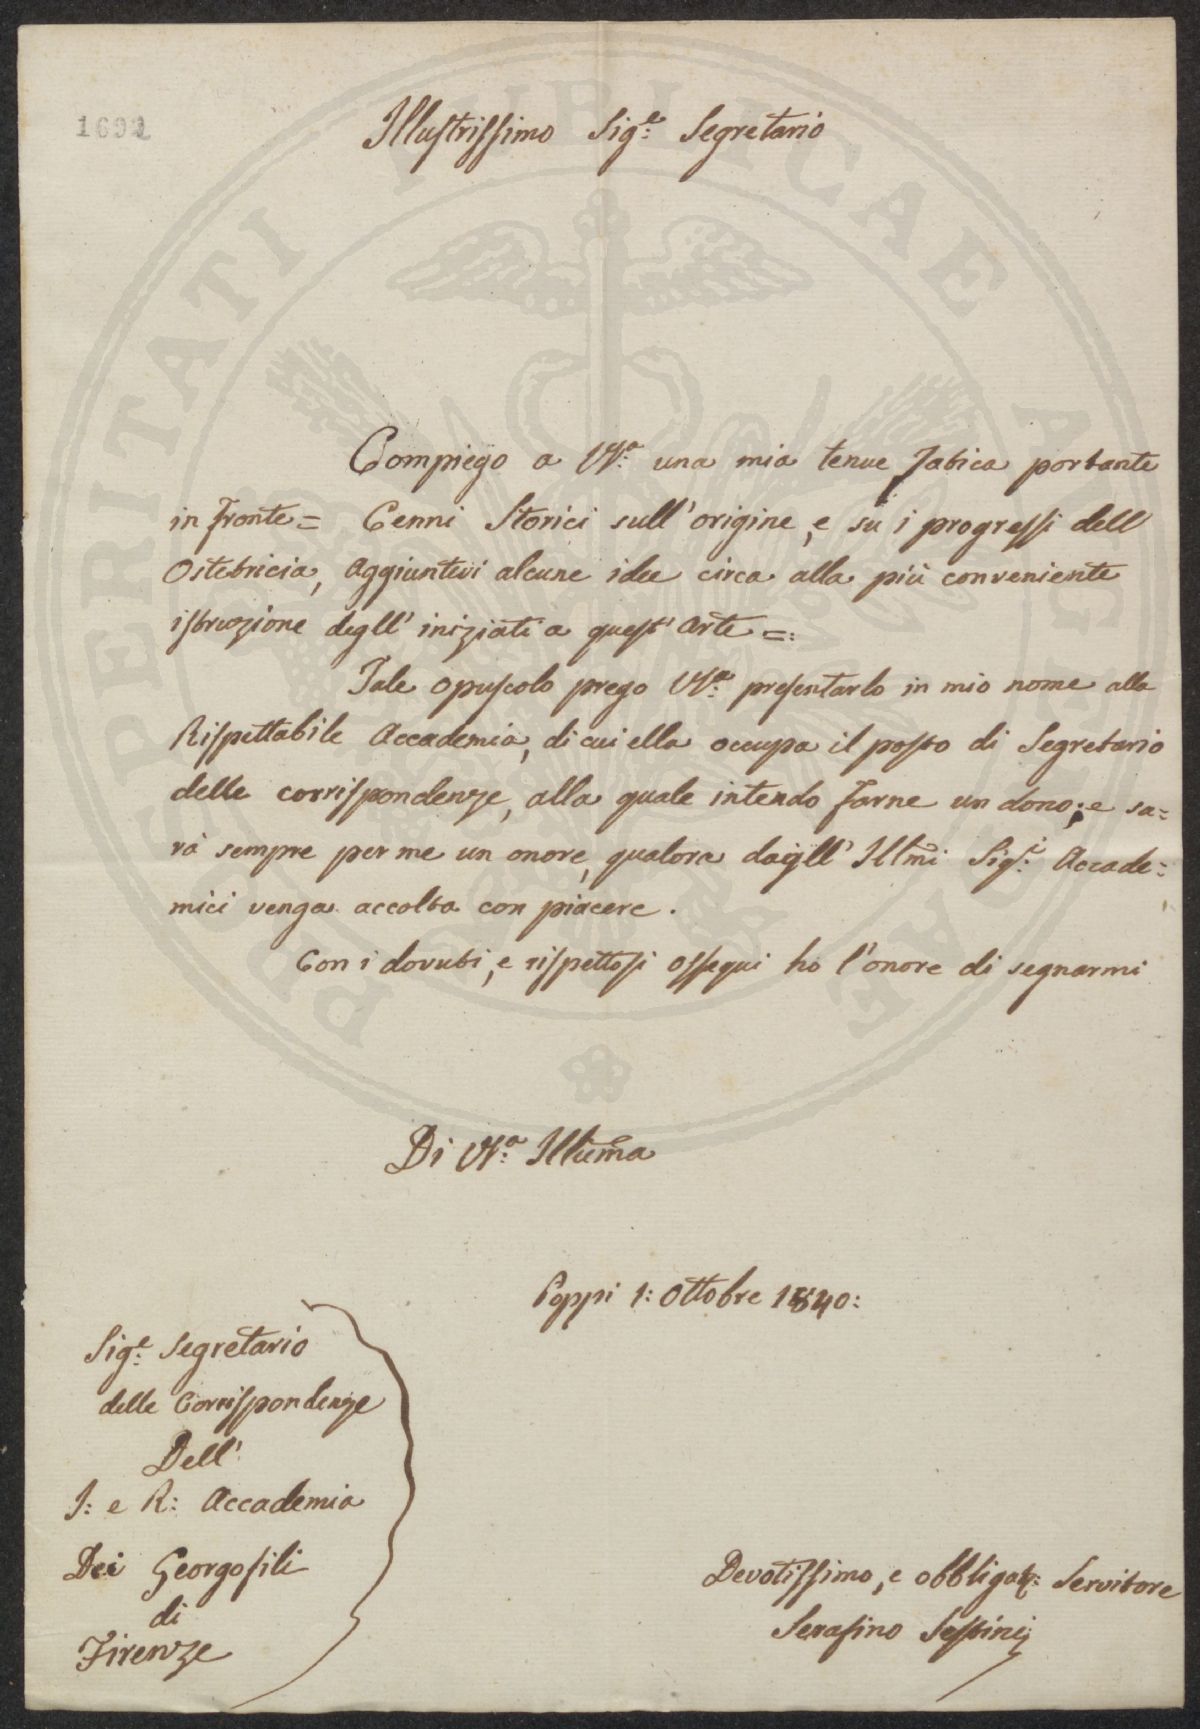 1692
Illustrissimo Sig.e Segretario
Compiego a VS.a una mia tenue fatica portante
in fronte = Cenni Storici sull'origine, e su i progressi dell'
Ostetricia, aggiuntivi alcune idee circa alla più conveniente
istruzione degll' iniziati a quest'arte =:
Tale opuscolo prego VS.a presentarlo in mio nome alla
Rispettabile Accademia, di cui ella occupa il posto di Segretario
delle corrispondenze, alla quale intendo farne un dono; e sa=
rà sempre per me un onore, qualora dagll' Illmi Sig.i Accade=
mici venga accolta con piacere.
Con i dovuti, e rispettosi ossequi ho l'onore di segnarmi
Di VS.a Illuma
Poppi 1: Ottobre 1840:
Sig.e Segretario
delle Corrispondenze
Dell'
I: e R: Accademia
Dei Georgofili
di
Firenze
Devotissimo, e obbligat: Servitore
Serafino
PROSPERITATI PUBLICAE AUGENDAE